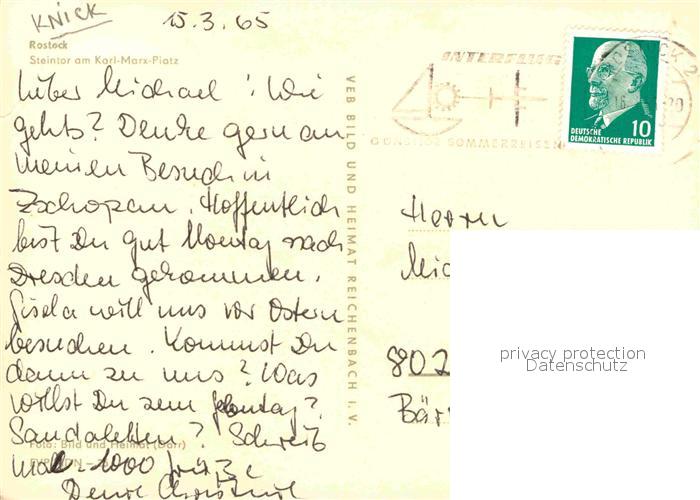 KNICK
15.3.65
Rostock
Steintor am Karl-Marx-Platz
Lieber Michael! Wie
gehts? Denke gern an
meinen Besuch in
Zschopau. Hoffentlich
bist Du gut Montag nach
Dresden gekommen.
Gisela will uns vor Ostern
besuchen. Kommst Du
dann zu uns? Was
willst Du zum
Sandaletten? Schreib
mal. 1000 Grüße
Deine Christine
Foto: Bild und Heimat (Darr)
VEB BILD UND HEIMAT REICHENBACH I. V.
INTERFLUG
GÜNSTIGE SOMMERREISEN
DEUTSCHE
DEMOKRATISCHE REPUBLIK
10
Herrn
Mic
802
Bär
privacy protection
Datenschutz